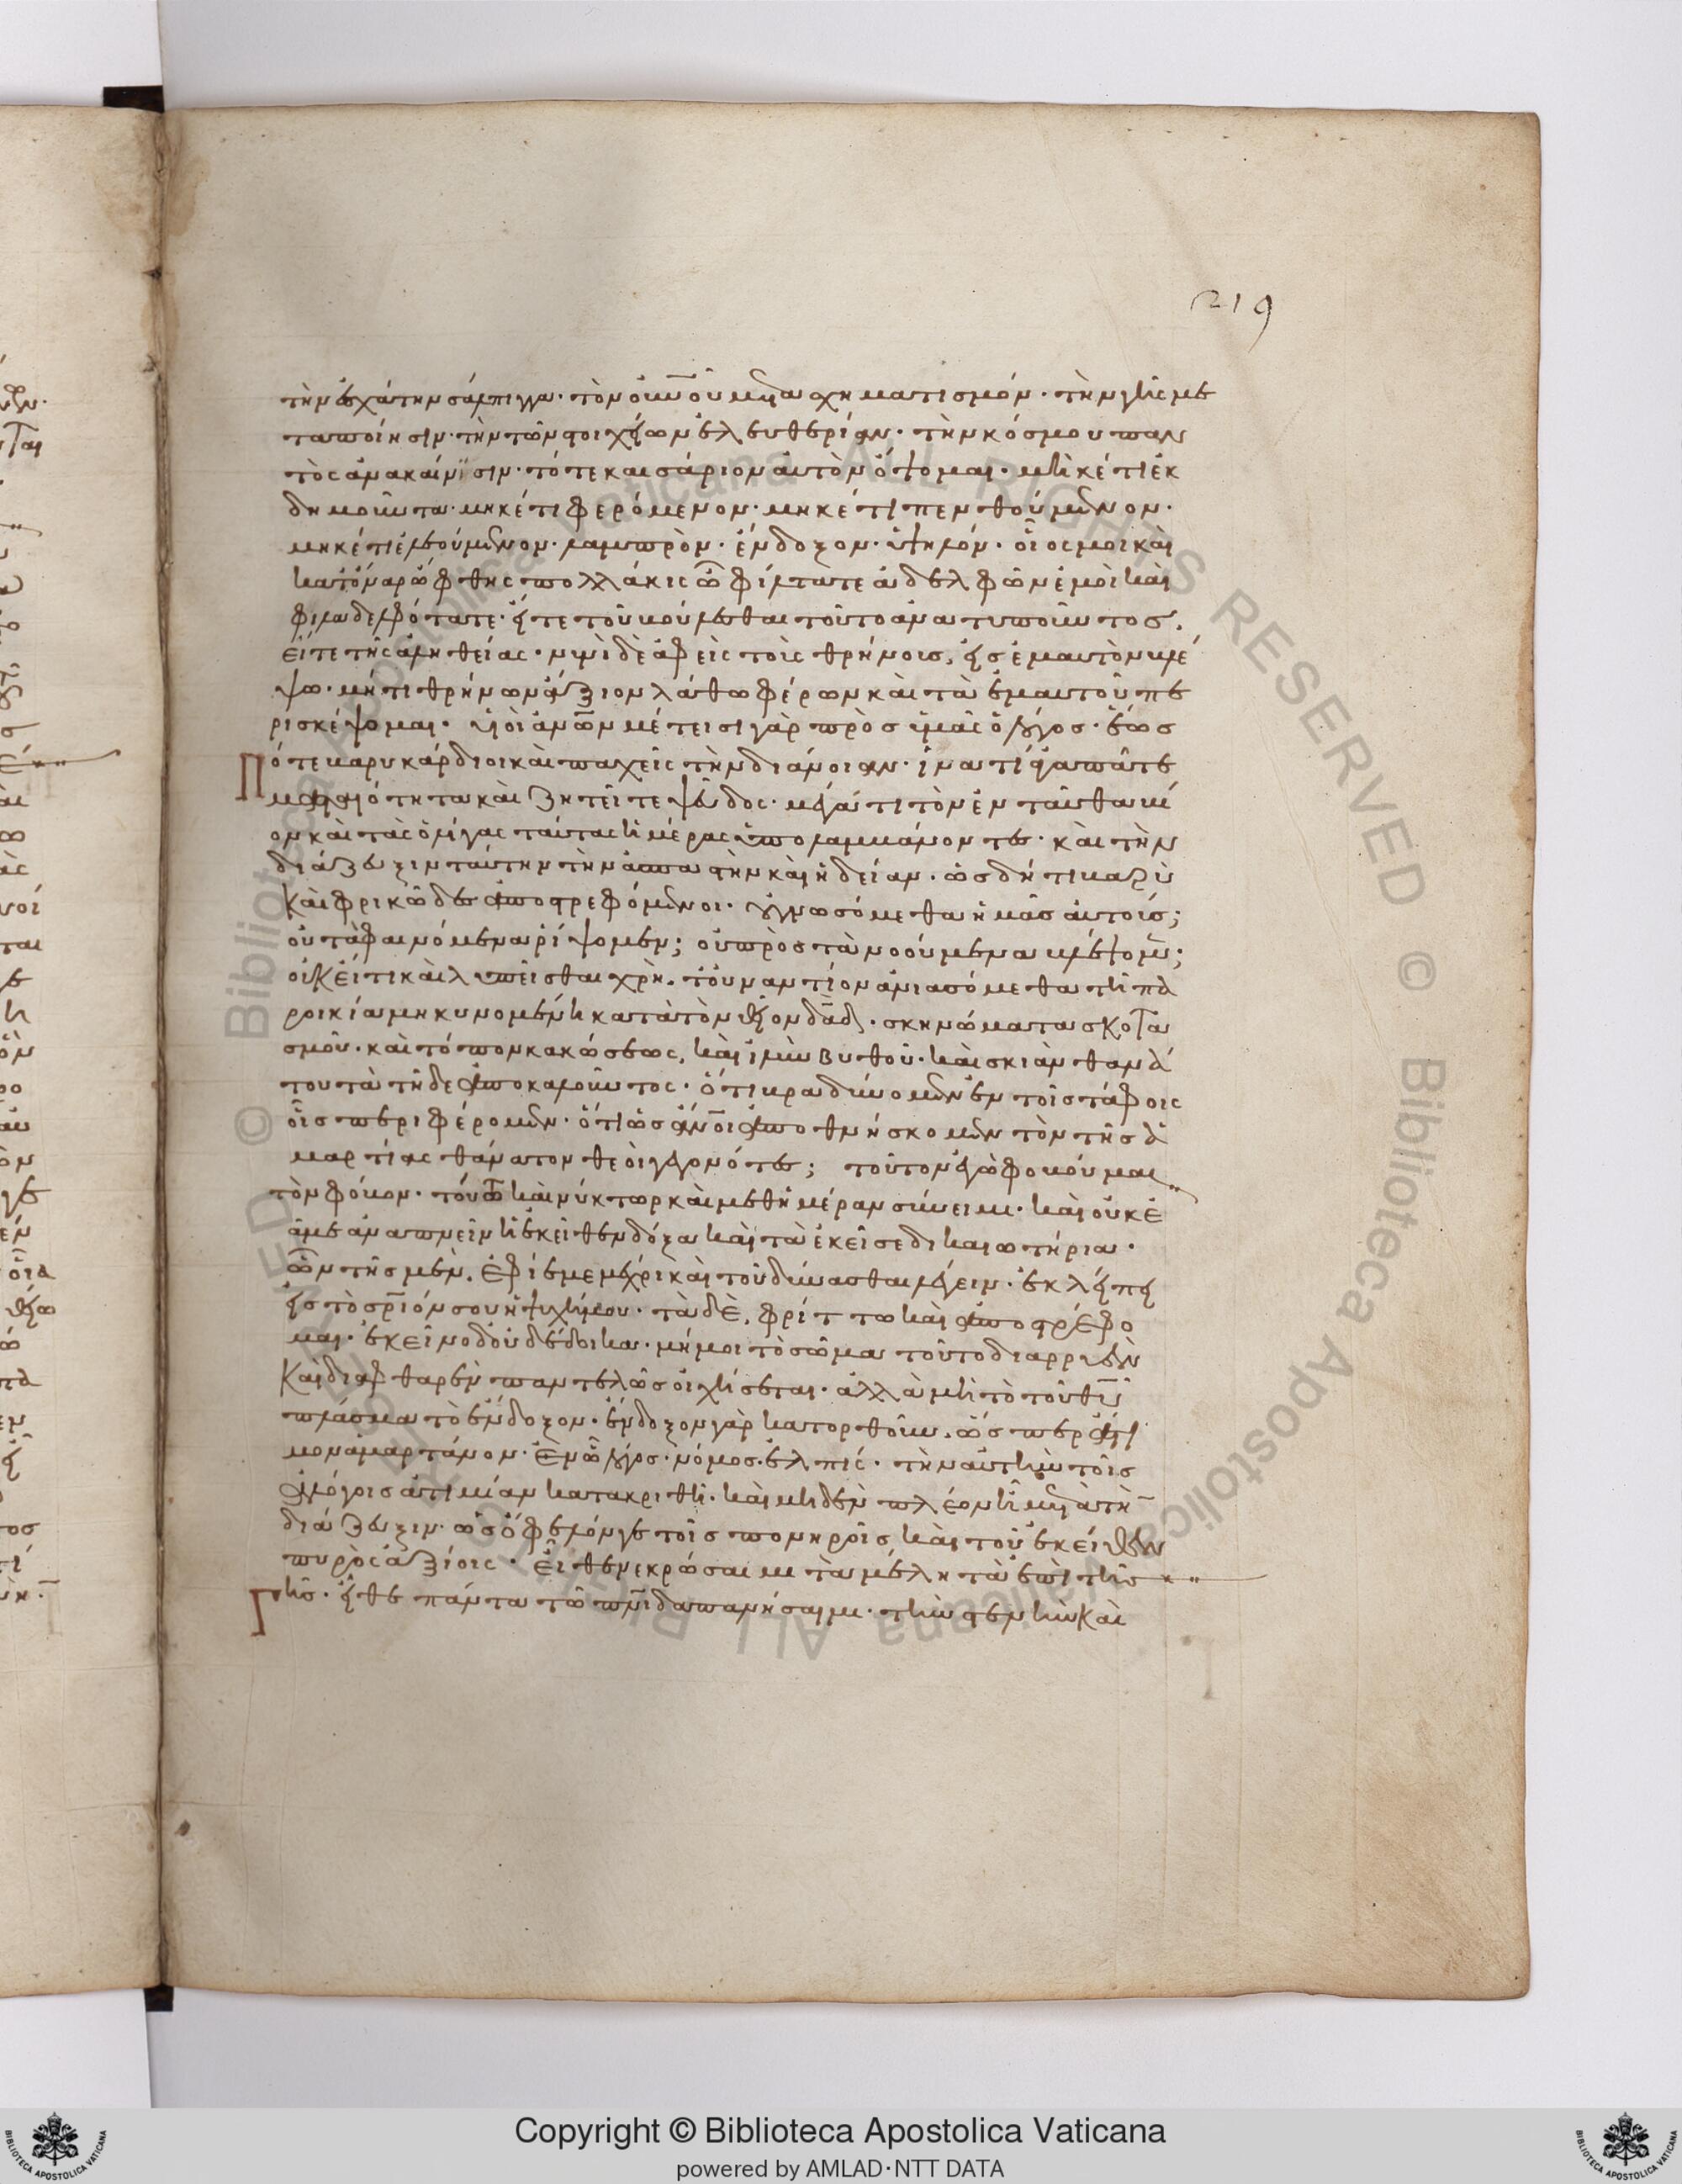 219
τὴν ἐσχάτην σάλπιγγα· τὸν οὐνοῦ μετασχηματισμόν· τὴν γῆς με
ταποίησιν· τὴν τῶν στοιχείων ἐλευθερίαν· τὴν κόσμου παν
τὸς ἀνακαίνισιν· τότε καισάριον αὐτὸν ὄψομαι· μηκέτι ἐκ
δημοῦντα· μηκέτι φερόμενον· μηκέτι πενθούμενον·
μηκέτι ἐλεούμενον· λαμπρὸν· ἔνδοξον· ὑψηλόν· οἷός μοι καὶ
κατόναρ ὤφθης πολλάκις ὦ φίλτατε ἀδελφῶν ἐμοὶ καὶ
φιλαδελφότατε· εἴτε τοῦ βούλεσθαι τοῦτο ἀνατυποῦντος,
εἴτε τῆς ἀληθείας· νυνὶ δὲ ἀφεὶς τοὺς θρήνους, εἰς ἐμαυτὸν βλέ
ψω· μή τι θρήνων ἄξιον λάθω φέρων καὶ τὰ ἐμαυτοῦ πε
ρισκέψομαι· υἱοὶ ἀνων μέτεισι γὰρ πρὸς ὑμᾶς ὁ λόγος· ἕως
πότε βαρυκάρδιοι καὶ παχεῖς τὴν διάνοιαν· ἵνα τί ἀγαπᾶτε
ματαιότητα καὶ ζητεῖτε ψεῦδος· μέγα τι τὸν ἐνταῦθα βί
ον καὶ τὰς ὀλίγας ταύτας ἡμέρας ὑπολαμβάνοντες· καὶ τὴν
διάζευξιν ταύτην τὴν ἀσπαστὴν καὶ ἡδεῖαν· ὡς δή τι βαρὺ
καὶ φρικῶδες ἀποστρεφόμενοι· οὐ γνωσόμεθα ἡμᾶς αὐτοὺς;
οὐ τὰ φαινόμενα ῥίψομεν; οὐ πρὸς τὰ νοούμενα βλέψομεν;
οὐκ εἴ τι καὶ λυπεῖσθαι χρὴ. τοὐναντίον ἀνιασόμεθα τῇ πα
ροικίᾳ μηκυνομένῃ κατὰ τὸν θεῖον δαδ· σκηνώματα σκοτα
σμοῦ· καὶ τόπον κακώσεως, καὶ ἰλὺν βυθοῦ· καὶ σκιὰν θανά
του τὰ τῇδε ἀποκαλοῦντος· ὅτι βραδύνομεν ἐν τοῖς τάφοις
οἷς περιφέρομεν· ὅτι ὡς ἄνοι ἀποθνήσκομεν τὸν τῆς ἁ
μαρτίας θάνατον θεοὶ γεγονότες; τοῦτον ἐγὼ φοβοῦμαι
τὸν φόβον· τούτω καὶ νύκτωρ καὶ μεθημέραν σύνειμι· καὶ οὐκ ἐ
ᾷ με ἀναπνεῖν ἡ ἐκεῖθεν δόξα καὶ τὰ ἐκεῖσε δικαιωτήρια·
ὧν τῆς μὲν, ἐφίεμαι μέχρι καὶ τοῦ δύνασθαι λέγειν· ἐκλείπει
εἰς τὸ σριόν σου ἡ ψυχή μου· τὰ δὲ, φρίττω καὶ ἀποστρέφο
μαι· ἐκεῖνο δ' οὐ δέδοικα· μή μοι τὸ σῶμα τοῦτο διαρρυὲν
καὶ διαφθαρὲν παντελῶς οἰχήσεται· ἀλλὰ μὴ τὸ τοῦ θυ
πλάσμα τὸ ἔνδοξον· ἔνδοξον γὰρ κατορθοῦν, ὥσπερ ἄτι
μον ἁμαρτάνον· ἐν ᾧ λόγος· νόμος· ἐλπίς· τὴν αὐτὴν τοῖς
ἀλόγοις ἀτιμίαν κατακριθῇ· καὶ μηδὲν πλέον ᾖ μετὰ τὴν
διάζευξιν· ὡς ὄφελόν γε τοῖς πονηροῖς καὶ τοῦ ἐκεῖθεν
πυρὸς ἀξίοις· εἴθε νεκρώσαιμι τὰ μέλη τὰ ἐπὶ τῆς
γῆς· εἴθε πάντα τῷ πνι δαπανήσαιμι· τὴν στενὴν καὶ